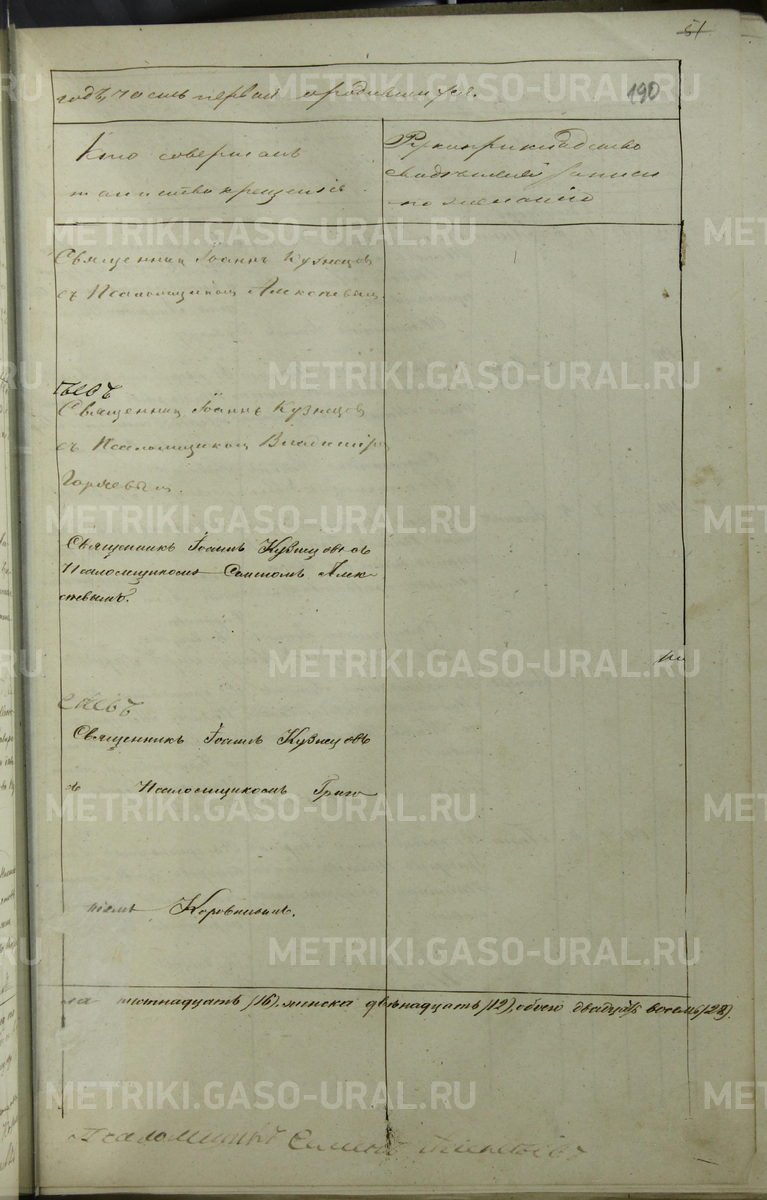 51
190
годъ, часть первая о родившихся.
Кто совершалъ
таинство крещенія.
Рукоприкладство
свидѣтелей записи
по желанію
Священникъ Іоаннъ Кузнецов
съ Псаломщиком Алексѣевым.
Священник Іоаннъ Кузнецов
съ Псаломщиком Владиміром
Горяевым.
Священникъ Іоаннъ Кузнецовъ съ
Псаломщикомъ Самсономъ Алек-
сѣевымъ.
Священникъ Іоаннъ Кузнецовъ
съ Псаломщикомъ Григо
ріемъ Коровинымъ.
ка шестнадцать (16), женска двѣнадцать (12), обоего двадцать восемь (28).
Псаломщикъ Алексѣевъ
METRIKI.GASO-URAL.RU